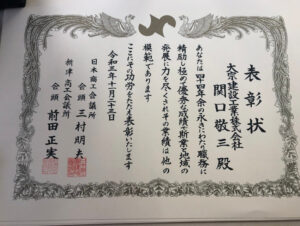 表彰状
大宗建設工業株式会社
関口敬三殿
あなたは四十四年余の永きにわたり職務に
精励し極めて優秀な成績で斯業と地域の
発展に力を尽くされその業績は他の
模範であります
ここにその功労をたたえ表彰いたします
令和三年十一月二十五日
日本商工会議所
会頭 三村明夫
商工会議所
会頭 前田正実